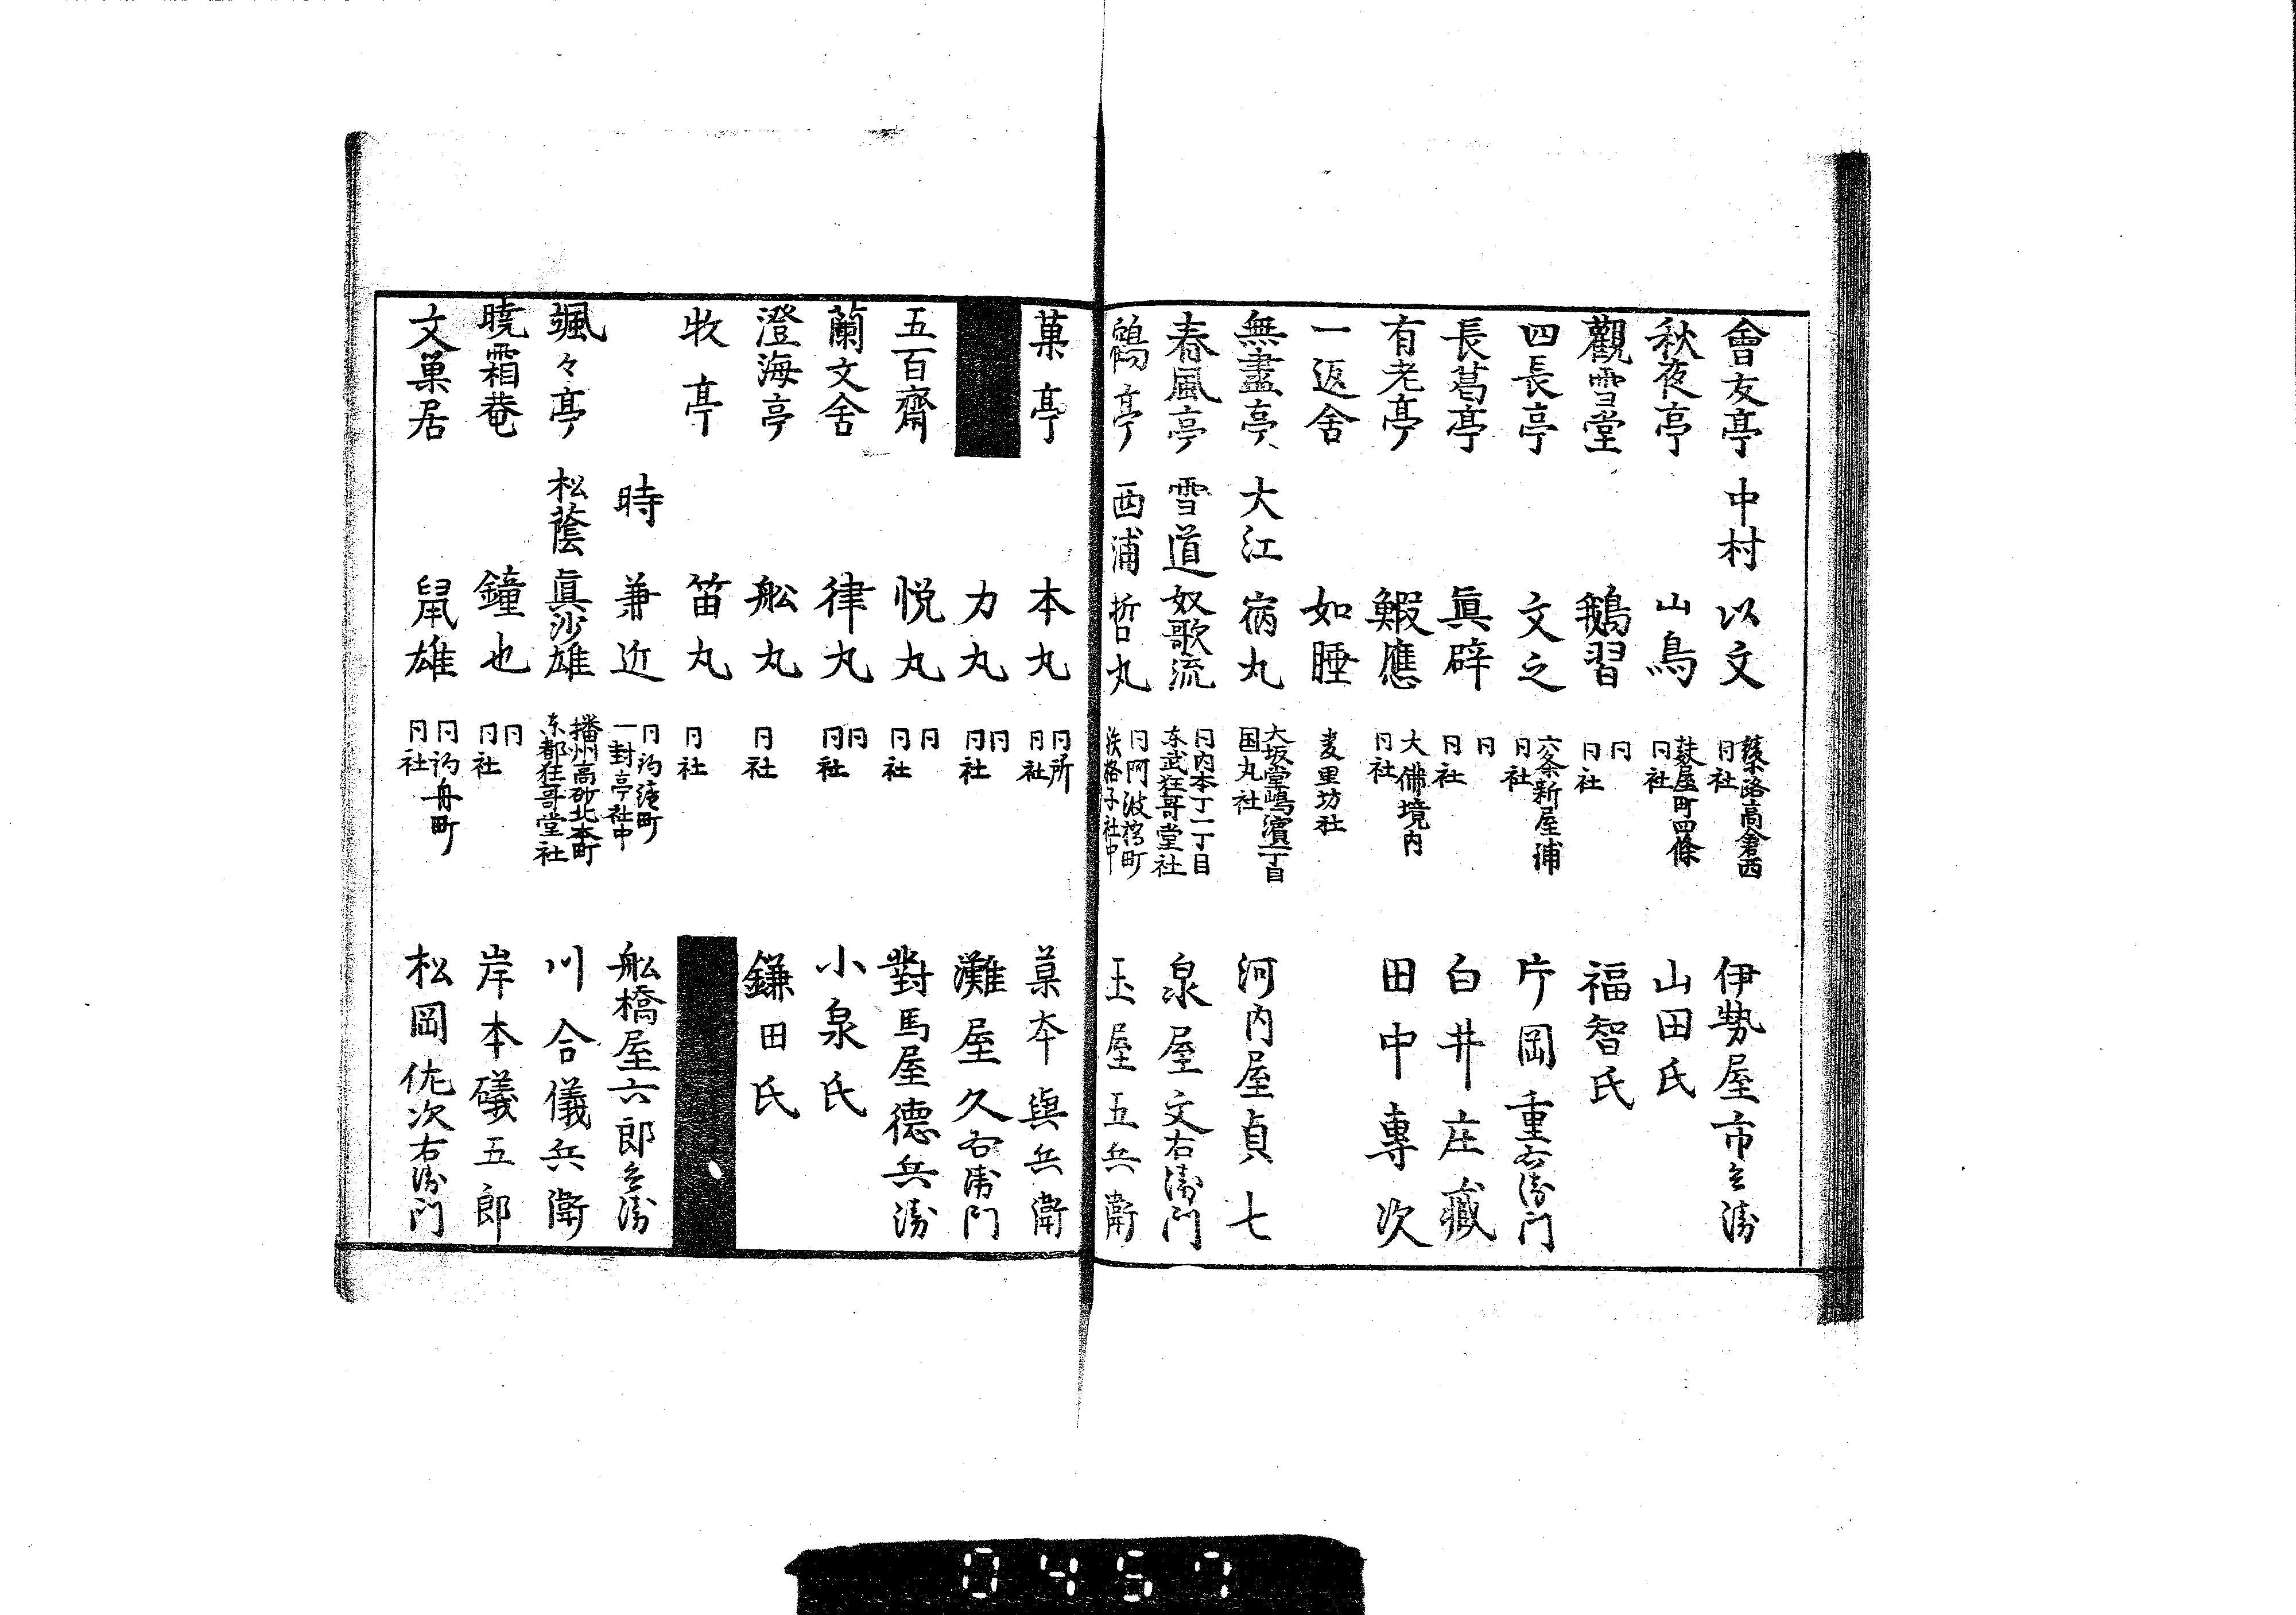 會友亭 中村 以文 藥路高倉西 日社 伊勢屋市兵衛
秋夜亭 山鳥 麸屋町四條 日社 山田氏
觀雪堂 鵝習 日 日社 福智氏
四長亭 文之 六条新屋浦 日社 片岡重右衛门
長葛亭 眞辟 日 日社 白井庄藏
有老亭 鰕應 大佛境内 日社 田中專次
一返舍 如睡 麦里坊社
無盡亭 大江 病丸 大坂堂嶋濱一丁目 国丸社 河内屋貞七
春風亭 雪道 奴歌流 日内本丁一丁目 东武狂哥堂社 泉屋文右衛门
鶴亭 西浦 哲丸 日阿波橋町 鉄格子社中 玉屋五兵衛
菓亭 本丸 日所 日社 菓本與兵衛
力丸 日 日社 灘屋久右衛門
五百齋 悦丸 日 日社 對馬屋德兵衛
蘭文舍 律丸 日 日社 小泉氏
澄海亭 舩丸 日 社 鎌田氏
牧亭 笛丸 日社
時 兼近 一封亭社中 舩橋屋六郎兵衛
颯々亭 松蔭 眞沙雄 播州高砂北本町 东都狂哥堂社 川合儀兵衛
曉霜菴 鐘也 日 日社 岸本礒五郎
文巣居 鼠雄 舟町 日社 松岡佐次右衛门
0457